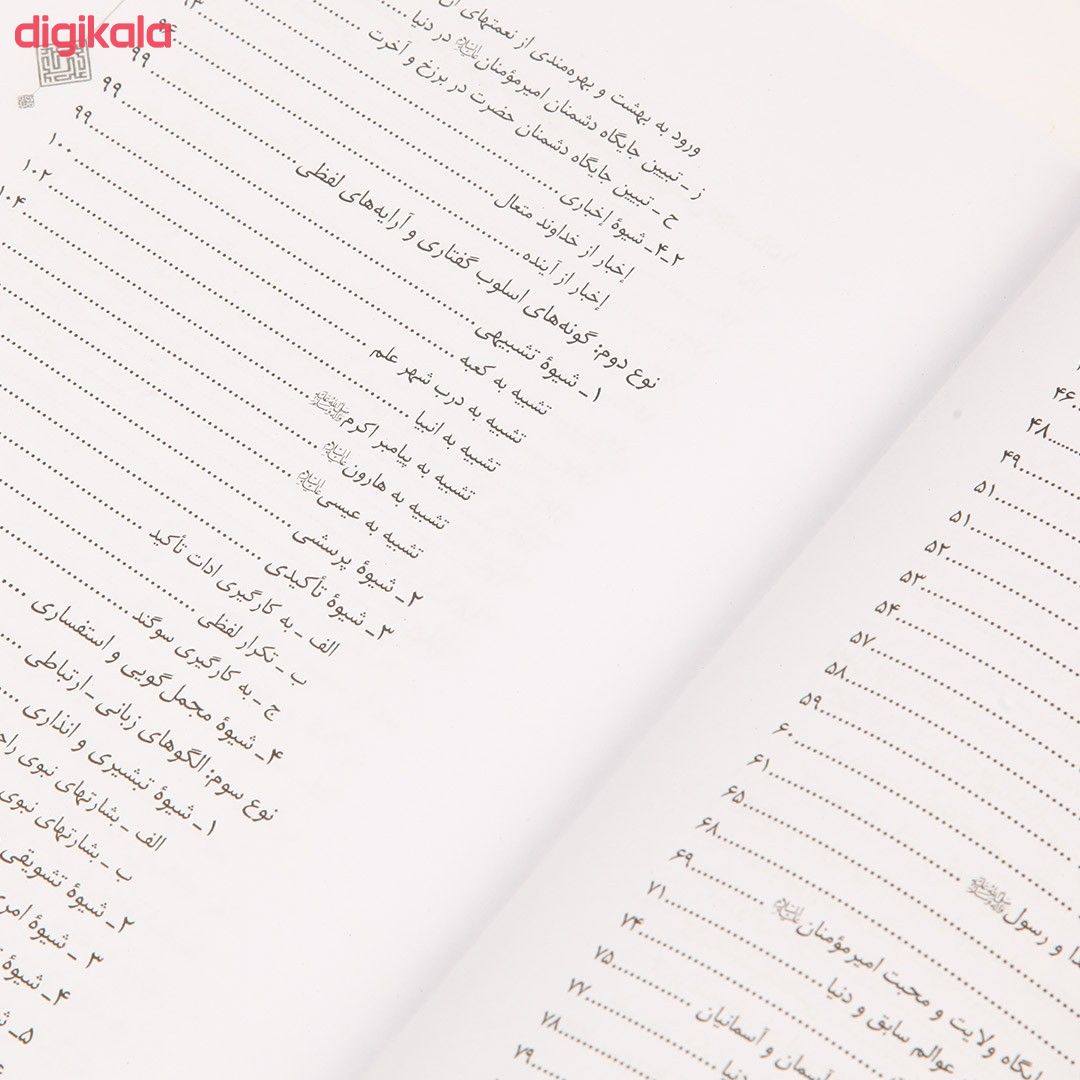 digikala
ورود به بهشت و بهره‌مندی از نعمتهای آن
ز ـ تبیین جایگاه دشمنان امیرمؤمنان علیه‌السلام در دنیا
ح ـ تبیین جایگاه دشمنان حضرت در برزخ و آخرت
۲ـ۴ـ شیوهٔ إخباری
إخبار از خداوند متعال
إخبار از آینده
نوع دوم: گونه‌های اسلوب گفتاری و آرایه‌های لفظی
۱ـ شیوهٔ تشبیهی
تشبیه به کعبه
تشبیه به درب شهر علم
تشبیه به انبیا
تشبیه به پیامبر اکرم
تشبیه به هارون
تشبیه به عیسی
۲ـ شیوهٔ پرسشی
۳ـ شیوهٔ تأکیدی
الف ـ به کارگیری ادات تأکید
ب ـ تکرار لفظی
ج ـ به کارگیری سوگند
۴ـ شیوهٔ مجمل‌گویی و استفساری
نوع سوم: الگوهای زبانی ـ ارتباطی
۱ـ شیوهٔ تبشیری و انذاری
الف ـ بشارتهای نبوی
ب ـ بشارتهای نبوی
۲ـ شیوهٔ تشویقی
۳ـ شیوهٔ
۴ـ شیوهٔ
۵ـ
۹۴
۹۹
۹۹
۹۹
۱۰۰
۱۰۲
۱۰۴
۴۶
۴۸
۴۹
۵۱
۵۱
۵۲
۵۳
۵۴
۵۷
۵۸
۵۹
۶۰
۶۱
۶۵
۶۸
و رسول ۶۹
۷۱
ولایت و محبت امیرمؤمنان ۷۴
عوالم سابق و دنیا ۷۵
۷۷
آسمان و آسمانیان ۷۸
دنیا ۷۹